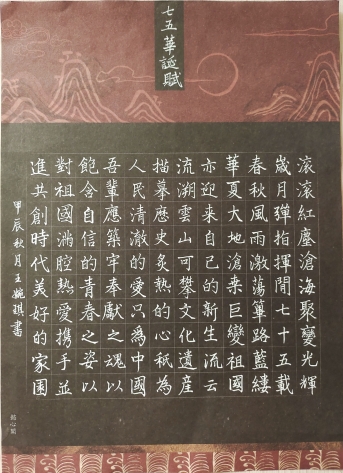 七五華誕賦
滾滾紅塵滄海聚變光輝
歲月彈指揮間七十五載
春秋風雨激蕩篳路藍縷
華夏大地滄桒巨變祖國
亦迎来自己的新生流云
流溯雲山可攀文化遺産
描摹歷史炙熱的心秖為
人民清澈的愛只為中國
吾輩應築牢奉獻之魂以
飽含自信的青春之姿以
對祖國滿腔熱愛携手並
進共創時代美好的家園
甲辰秋月王婉琪書